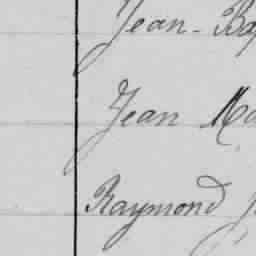 Jean-Ba
Jean Ma
Raymond